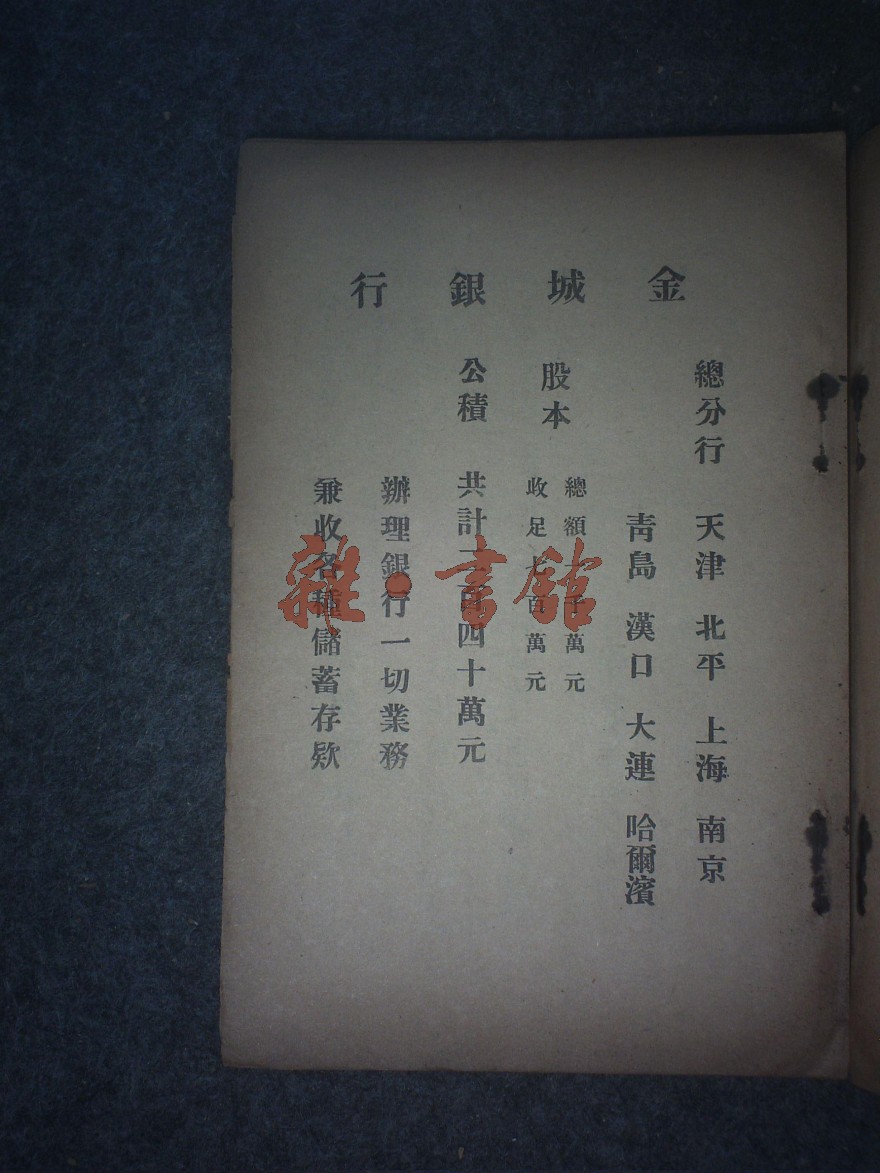 金城銀行
總分行 天津 北平 上海 南京
青島 漢口 大連 哈爾濱
股本 總額一千萬元
收足七百萬元
公積 共計二百四十萬元
辦理銀行一切業務
兼收各種儲蓄存欵
雜·書館